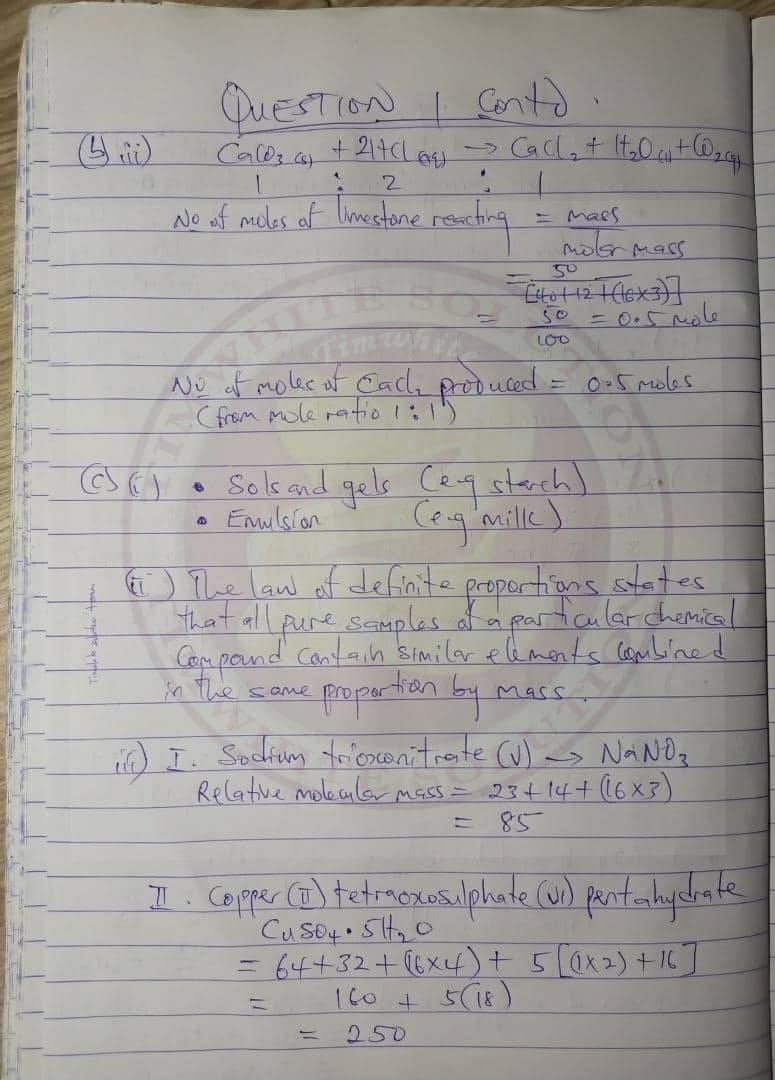 QUESTION 1 Contd.
(b) iii) CaCO3 (s) + 2HCl (aq) → CaCl2 + H2O (l) + CO2 (g)
1 : 2 : 1
No of moles of limestone reacting = mass
molar mass
= 50
[40+12+(16×3)]
= 50 = 0.5 mole
100
No of moles of CaCl2 produced = 0.5 moles
(from mole ratio 1:1)
(c) (i) • Sols and gels (e.g starch)
• Emulsion (e.g milk)
(ii) The law of definite proportions states
that all pure samples of a particular chemical
Compound contain similar elements combined
in the same proportion by mass.
iii) I. Sodium trioxonitrate (V) → NaNO3
Relative molecular mass = 23+14+(16×3)
= 85
II. Copper (II) tetraoxosulphate (VI) pentahydrate
CuSO4.5H2O
= 64+32+(16×4) + 5[(1×2)+16]
= 160 + 5(18)
= 250
TIMWHITE SOLUTION
Timwhite
TIMWHITE SOLUTION